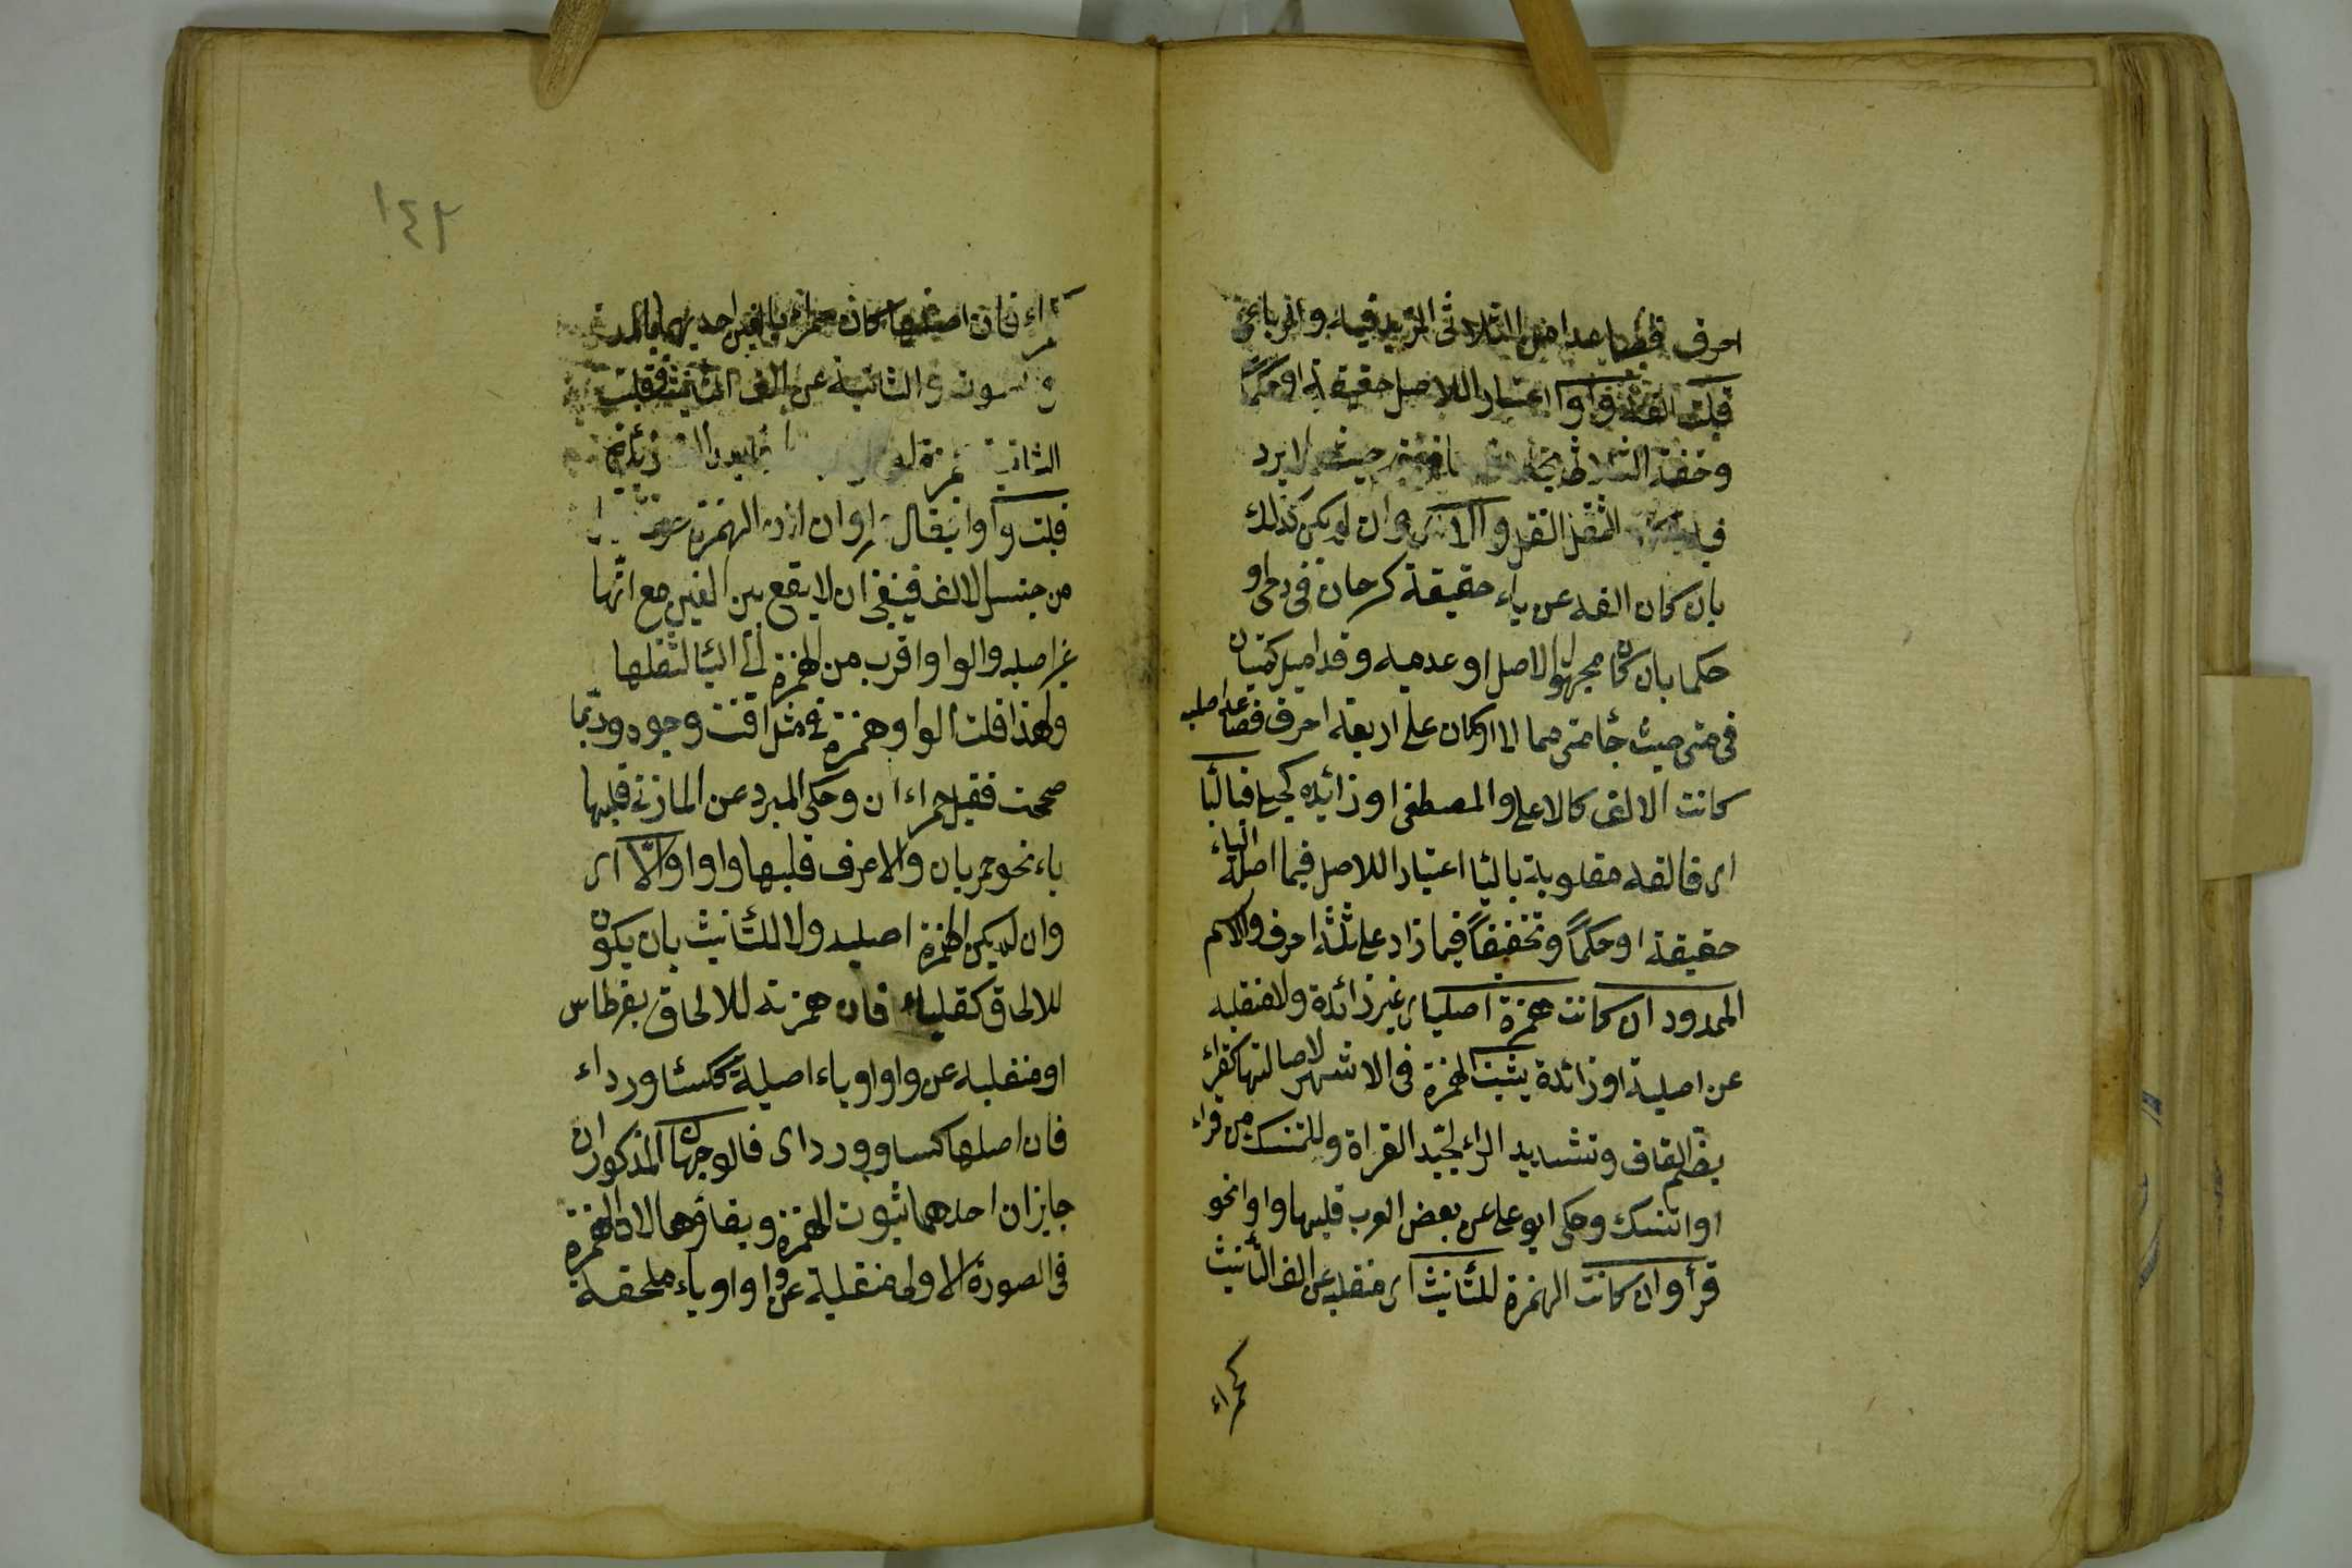 احرف فصاعدا من الثلاثى المزيد فيه والرباعى
قلبت الفه واوا اعتبارا للاصل حقيقة او حكما
وخفة الثلاثى حيث لا يرد
فيه والا اى وان لم يكن كذلك
بان كان الفه عن ياء حقيقة كرحان فى رحى او
حكما بان كان مجهول الاصل او عدميه وقد اميل كمتيان
فى متى حيث جاء متى مما لا او كان على اربعة احرف فصاعدا اصليه
كانت الالف كالاعلى والمصطفى او زائده كحبلى فباليا
اى فالفه مقلوبة باليا اعتبارا للاصل فيما اصله الياء
حقيقة او حكماً وتخفيفاً فيما زاد على ثلثة احرف والاسم
الممدود ان كانت همزة اصليا اى غير زائدة ولا منقلبه
عن اصلية او زائدة يثبت الهمزة فى الاشهر لاصالتها كقراء
بضم القاف وتشديد الراء لجيّد القراة وللمتنسك من قراء
او اتنسك وحكى ابو على عن بعض العرب قلبها واوا نحو
قرأ وان كانت الهمزة للتانيث اى منقلبه عن الف التأنيث
كحمراء
١٤٢
حمراء فان اصلها كان حمراى بالفين احديهما للمد
والثانية عن الف التانيث فقلبت
الثانية همزة
قلبت واوا فيقال وان لان الهمزة
من جنس الالف فينبغى ان لا يقع بين الفين مع انّها
غير اصليه والواو اقرب من الهمزة الى اليا لثقلها
ولهذا قلبت الواو همزة فى مثل اقتت وجوه وربّما
صححت فقيل حمراء ان وحكى المبرد عن المازنى قلبها
ياء نحو حمريان والاعرف قلبها واوا والا اى
وان لم يكن الهمزة اصليه ولا للتانيث بان يكون
للالحاق كعلباء فان همزته للالحاق بقرطاس
او منقلبه عن واو او ياء اصلية ككسا ورداء
فان اصلها كساو ورداى فالوجهان المذكوران
جايزان احدهما ثبوت الهمزة وبقاؤها لان الهمزة
فى الصورة الاولى منقلبة عن واو او ياء ملحقة